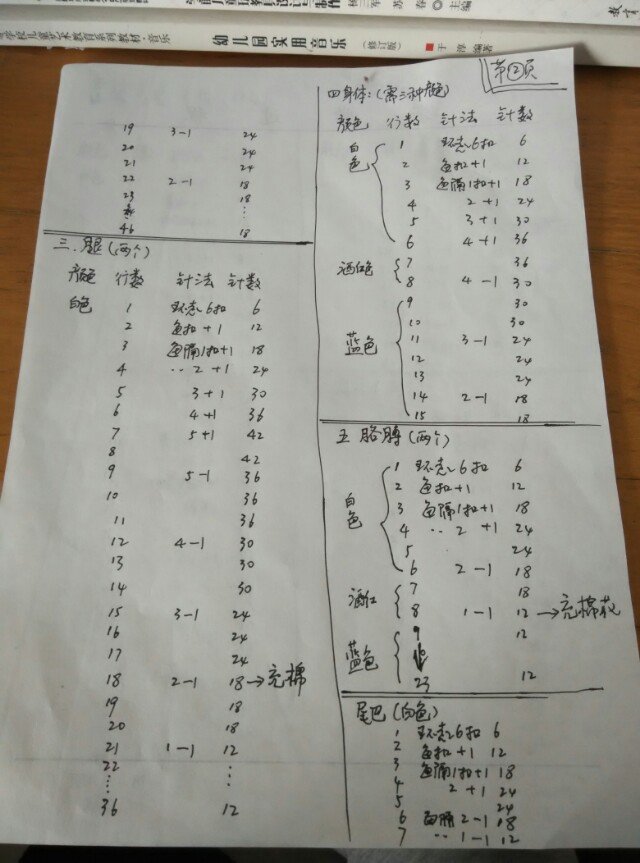 幼儿园实用音乐 (修订版) ■于渊 编著
第②页
19 3-1 24
20 24
21 24
22 2-1 18
23 18
⋮
46 18
三.腿(两个)
颜色 行数 针法 针数
白色 1 环忐6扣 6
2 鱼扣+1 12
3 鱼隔1扣+1 18
4 ‥2+1 24
5 3+1 30
6 4+1 36
7 5+1 42
8 42
9 5-1 36
10 36
11 36
12 4-1 30
13 30
14 30
15 3-1 24
16 24
17 24
18 2-1 18→充棉
19 18
20 18
21 1-1 12
22 ⋮
⋮
36 12
四身体:(需三种颜色)
颜色 行数 针法 针数
白色
1 环忐6扣 6
2 鱼扣+1 12
3 鱼隔1扣+1 18
4 2+1 24
5 3+1 30
6 4+1 36
酒红色
7 36
8 4-1 30
蓝色
9 30
10 30
11 3-1 24
12 24
13 24
14 2-1 18
15 18
五.胳膊(两个)
白色
1 环忐6扣 6
2 鱼扣+1 12
3 鱼隔1扣+1 18
4 ‥2+1 24
5 24
6 2-1 18
酒红
7 18
8 1-1 12→充棉花
蓝色
9 12
23 12
尾巴(白色)
1 环忐6扣 6
2 鱼扣+1 12
3 鱼隔1扣+1 18
4 2+1 24
5 24
6 鱼隔2-1 18
7 ‥1-1 12